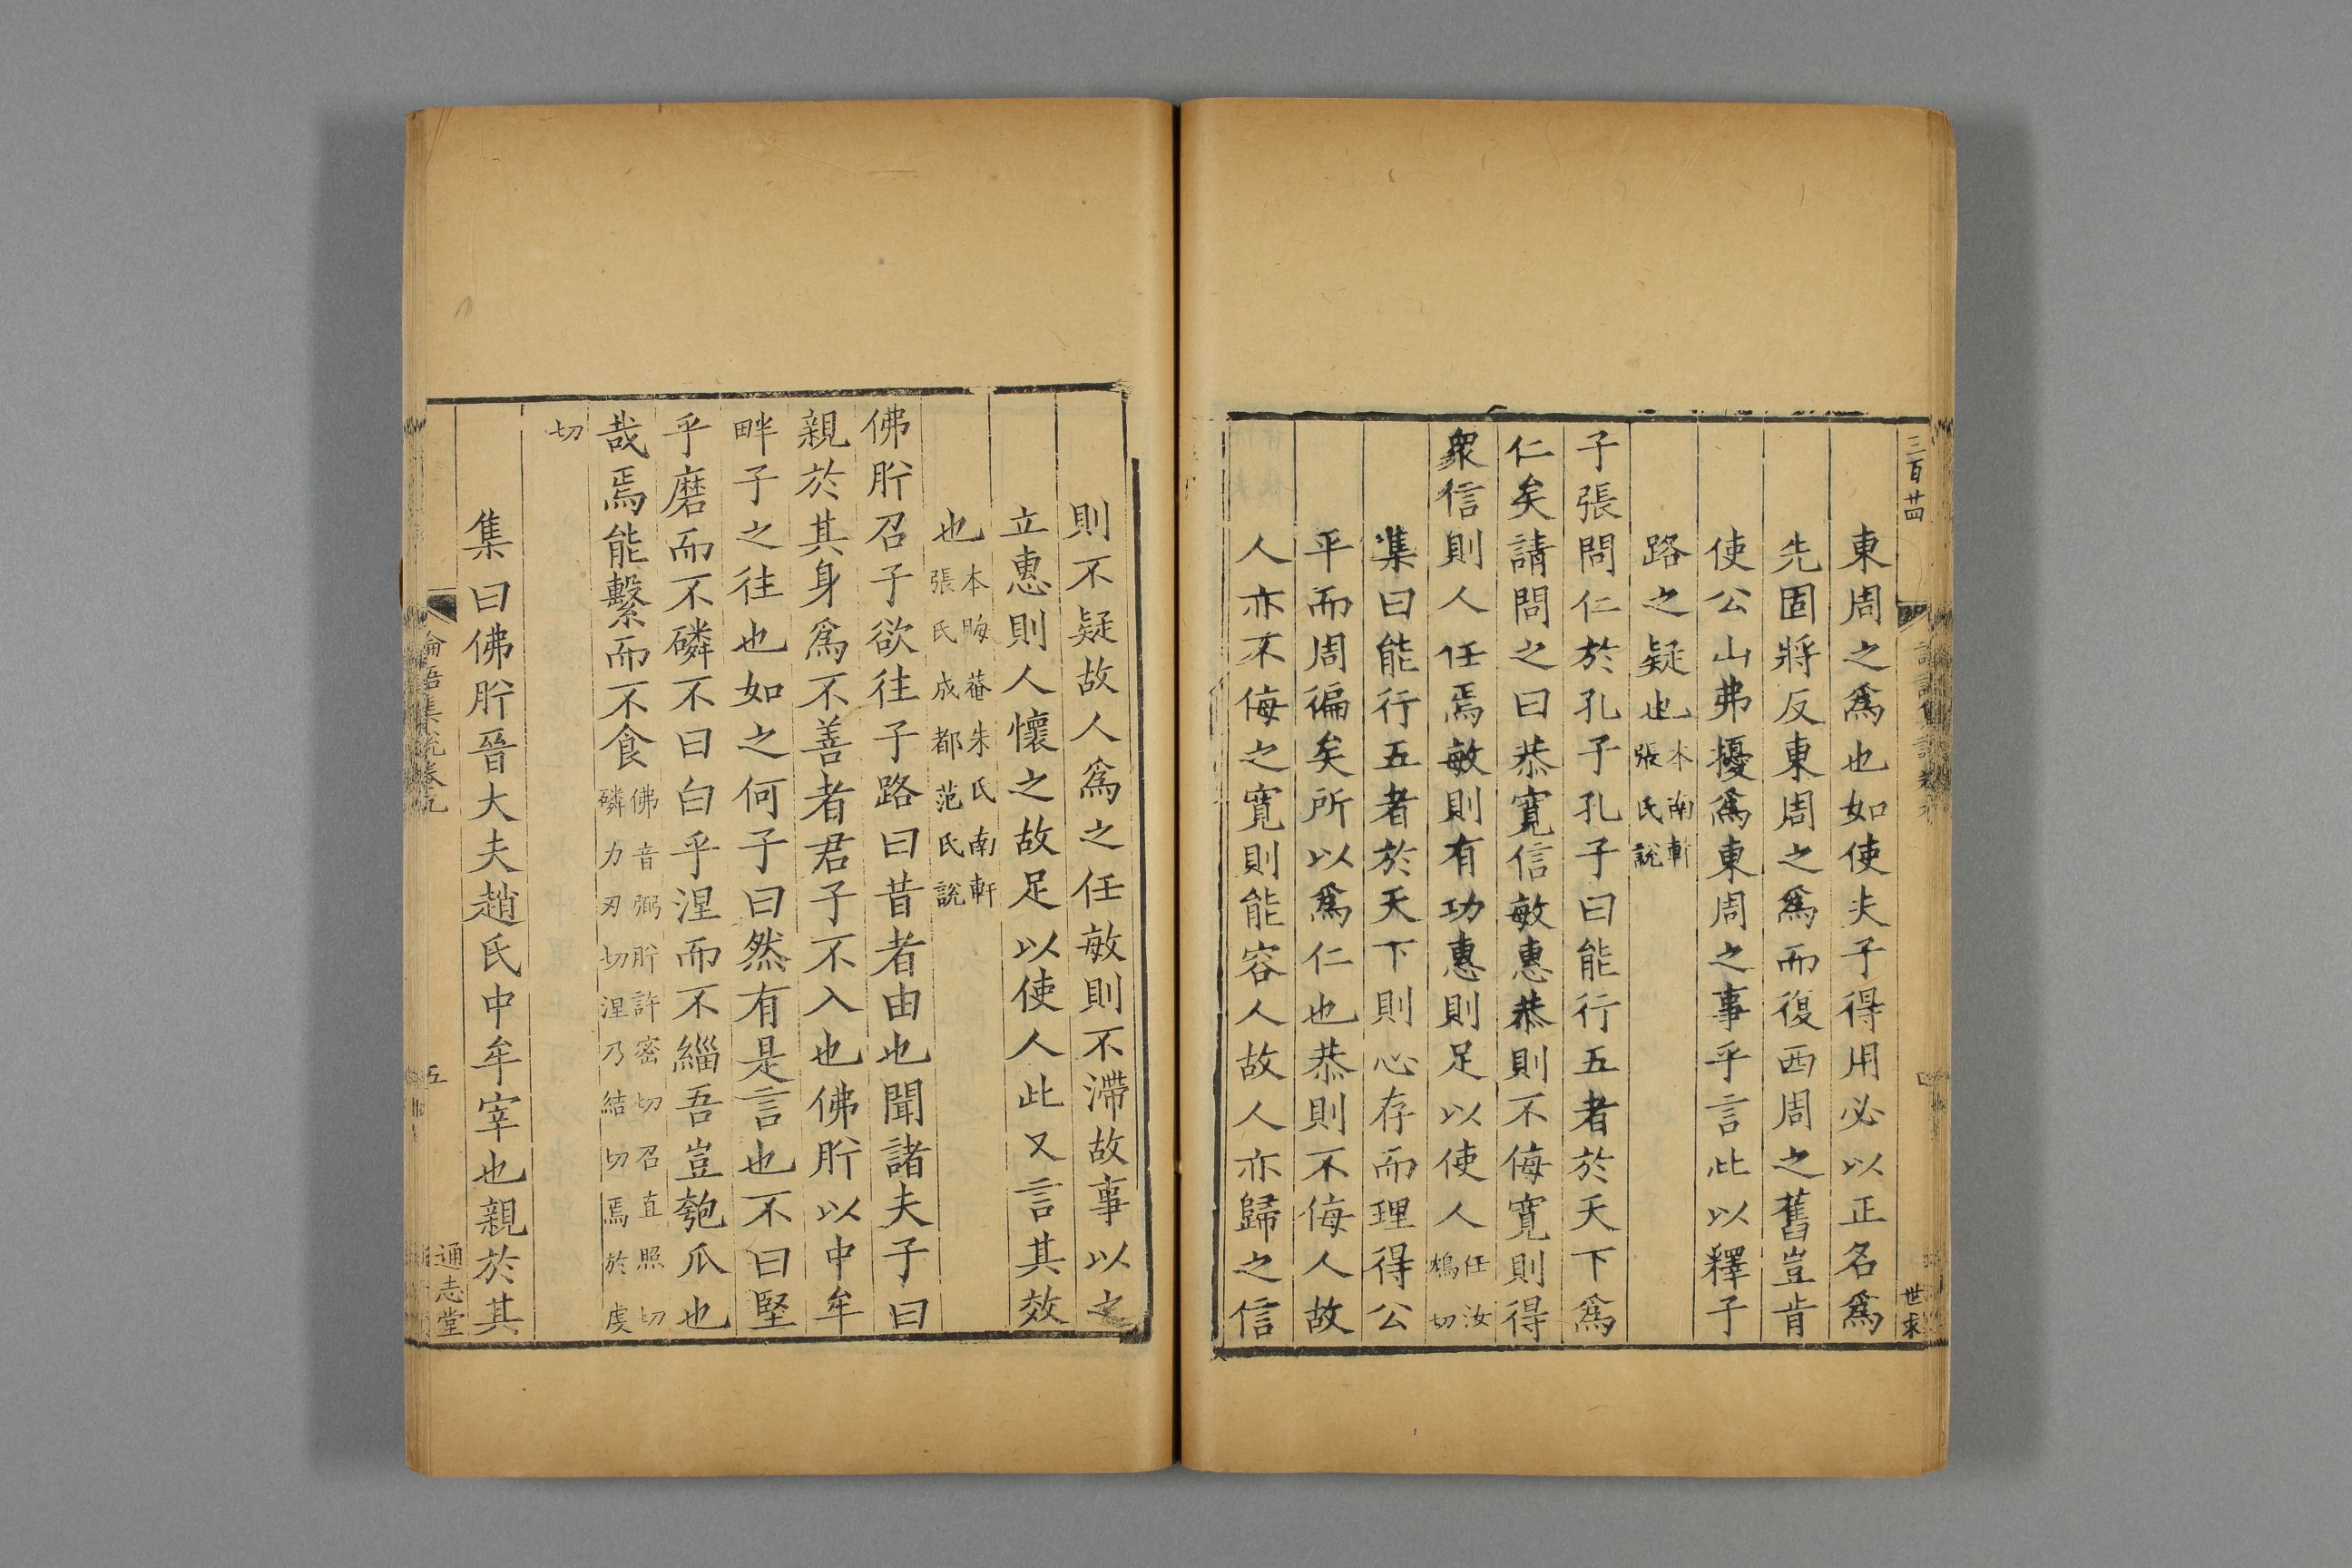 三百廿四
世求
東周之爲也如使夫子得用必以正名爲
先固將反東周之爲而復西周之舊豈肯
使公山弗擾爲東周之事乎言此以釋子
路之疑也本南軒張氏說
子張問仁於孔子孔子曰能行五者於天下爲
仁矣請問之曰恭寬信敏惠恭則不侮寬則得
衆信則人任焉敏則有功惠則足以使人任汝鴆切
集曰能行五者於天下則心存而理得公
平而周徧矣所以爲仁也恭則不侮人故
人亦不侮之寬則能容人故人亦歸之信
則不疑故人爲之任敏則不滯故事以之
立惠則人懷之故足以使人此又言其效
也本晦菴朱氏南軒張氏成都范氏說
佛肸召子欲往子路曰昔者由也聞諸夫子曰
親於其身爲不善者君子不入也佛肸以中牟
畔子之往也如之何子曰然有是言也不曰堅
乎磨而不磷不曰白乎涅而不緇吾豈匏瓜也
哉焉能繫而不食佛音弼肸許密切召直照切磷力刃切涅乃結切焉於虔
切
集曰佛肸晉大夫趙氏中牟宰也親於其
論語集說卷九
五
通志堂